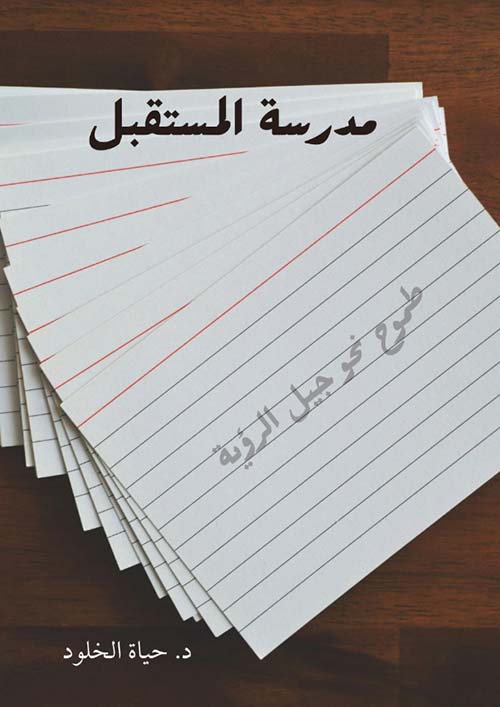 مدرسة المستقبل
طموح نحو جيل الرؤية
د. حياة الخلود